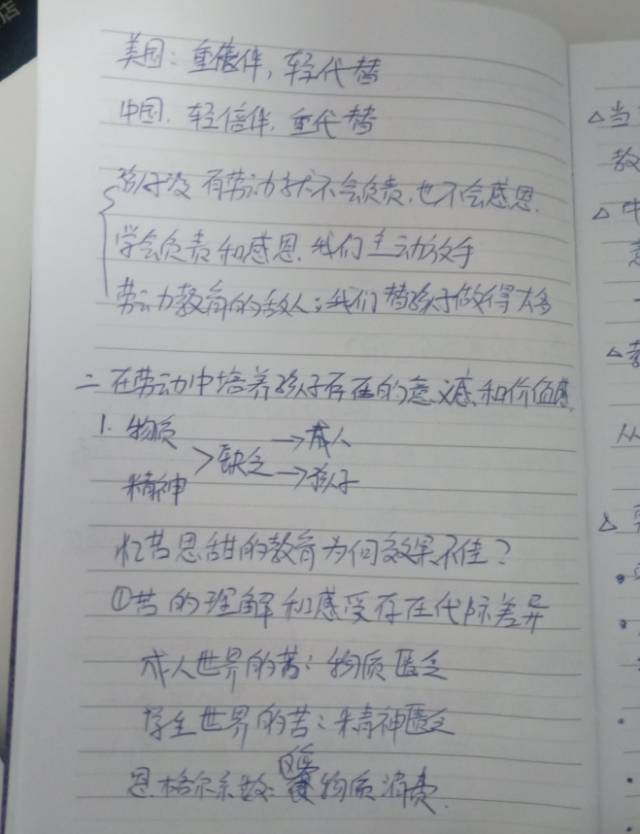 店
美国：重陪伴，轻代替
中国．轻陪伴．重代替
孩子没有劳动就不会负责，也不会感恩．
学会负责和感恩．我们主动放手
劳动教育的敌人：我们替孩子做得太多
二 在劳动中培养孩子存在的意义感和价值感
1. 物质
> 缺乏 → 成人
精神 → 孩子
忆苦思甜的教育为何效果不佳？
①苦的理解和感受存在代际差异
成人世界的苦：物质匮乏
学生世界的苦：精神匮乏
恩格尔系数： 物质消费．
△当
教
△
△
从
△